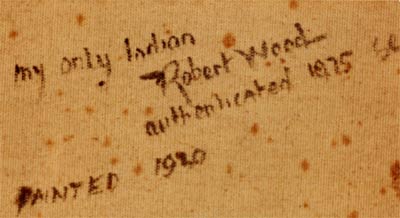 my only Indian
Robert Wood
authenticated 1975
PAINTED 1920